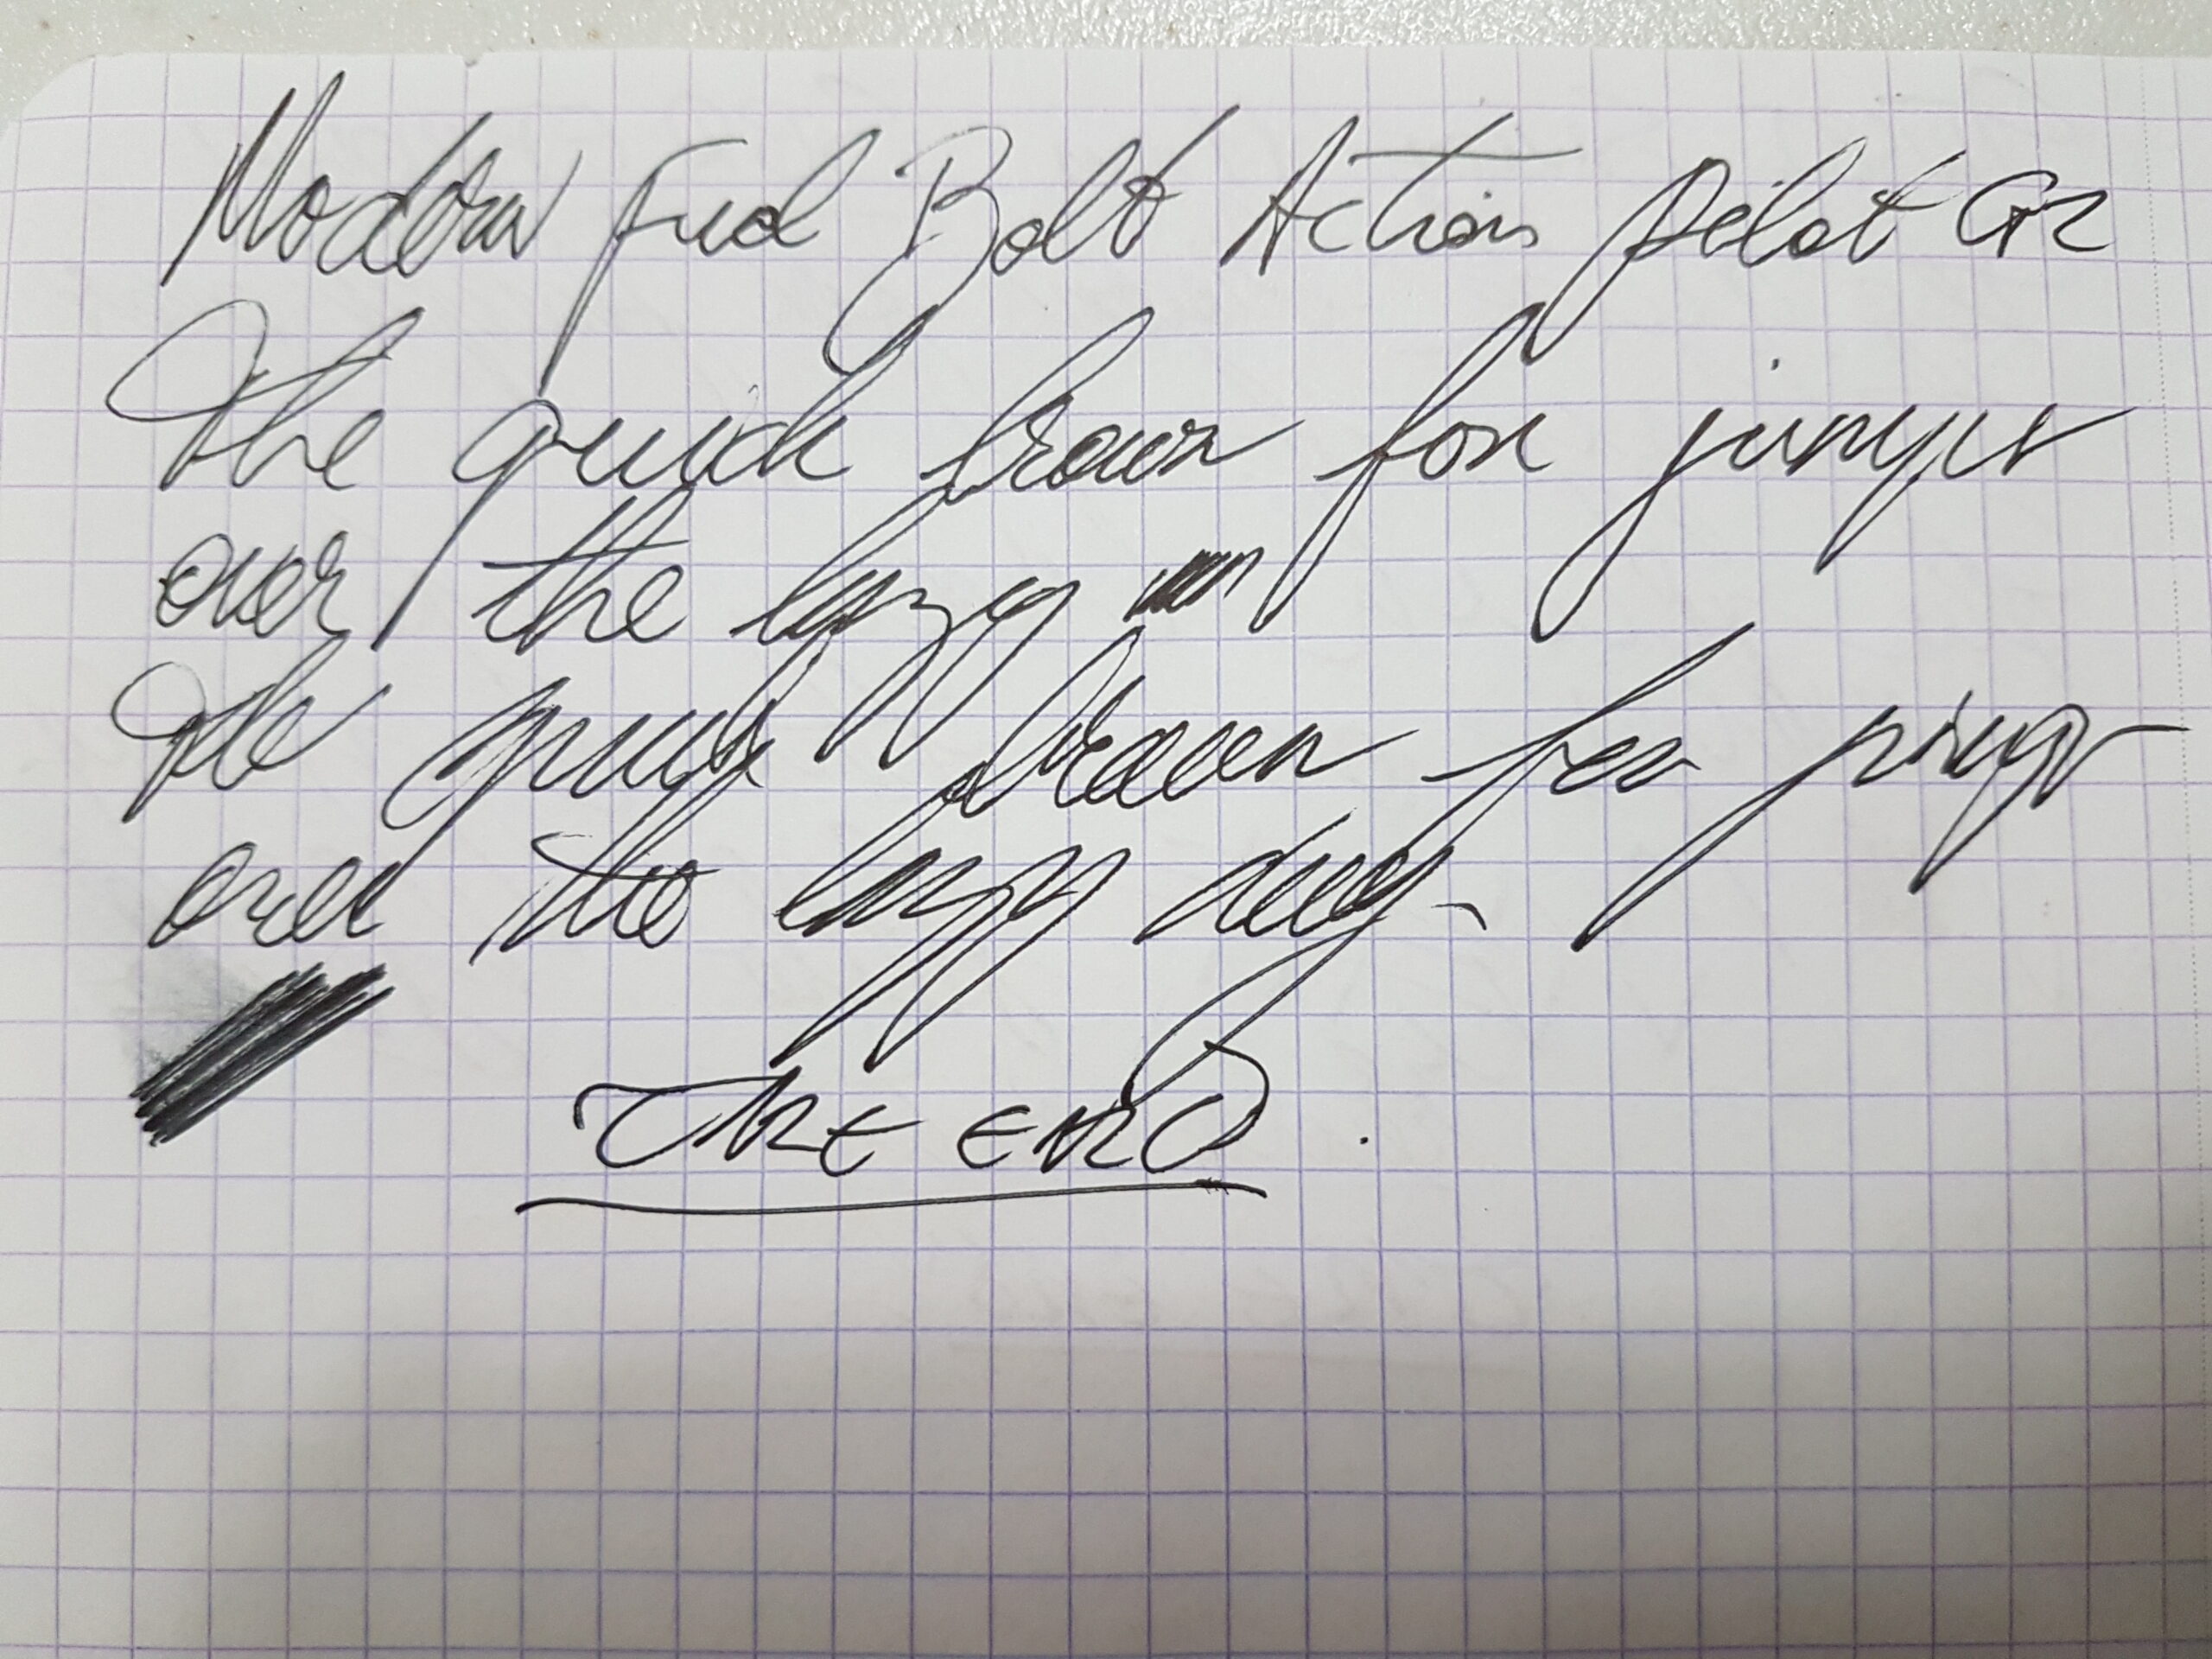 Modern Fuel Bolt Action Pilot G2
The quick brown fox jumps
over the lazy
The quick brown fox jumps
over the lazy dog.
THE END.